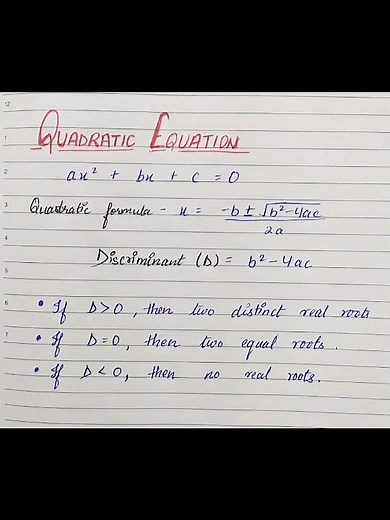 12
1
QUADRATIC EQUATION
2
ax² + bx + c = 0
3
Quadratic formula - x = -b ± √b²-4ac / 2a
4
Discriminant (D) = b² - 4ac
5
6
• If D > 0, then two distinct real roots
7
• If D = 0, then two equal roots.
• If D < 0, then no real roots.